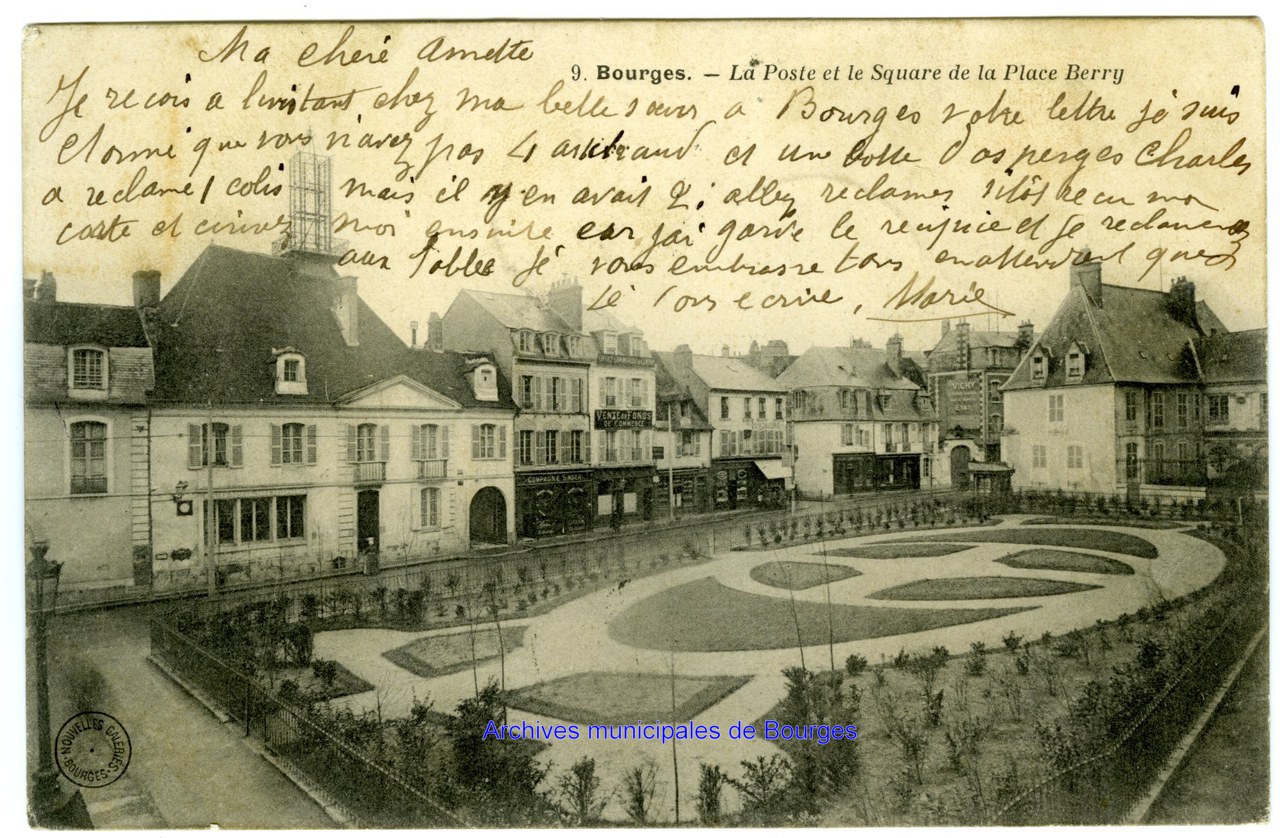 Ma chère Annette
9. Bourges. – La Poste et le Square de la Place Berry
Je recois a linstant chez ma belle sœur a Bourges votre lettre je suis
etonné que vous n'avez pas 4 et un botte d'asperges Charles
a reclamé 1 colis mais il y en avait 2; allez reclames sitôt recu ma
carte et ecrivez moi ensuite car j'ai garde le recipice et je reclamerez
aux Aoblec Je vous embrasse tous en attendant que
Je vous ecrive, Marie
VENTE DE FONDS
DE COMMERCE
COMPAGNIE SINGER
VICHY
NOUVELLES GALERIES
BOURGES
Archives municipales de Bourges